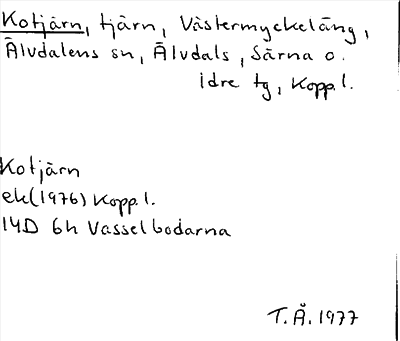 Kotjärn, tjärn, Västermyckeläng,
Älvdalens sn, Älvdals, Särna o.
idre tg, Kopp.l.
Kotjärn
ek(1976) Kopp.l.
14D 6h Vasselbodarna
T.Å. 1977